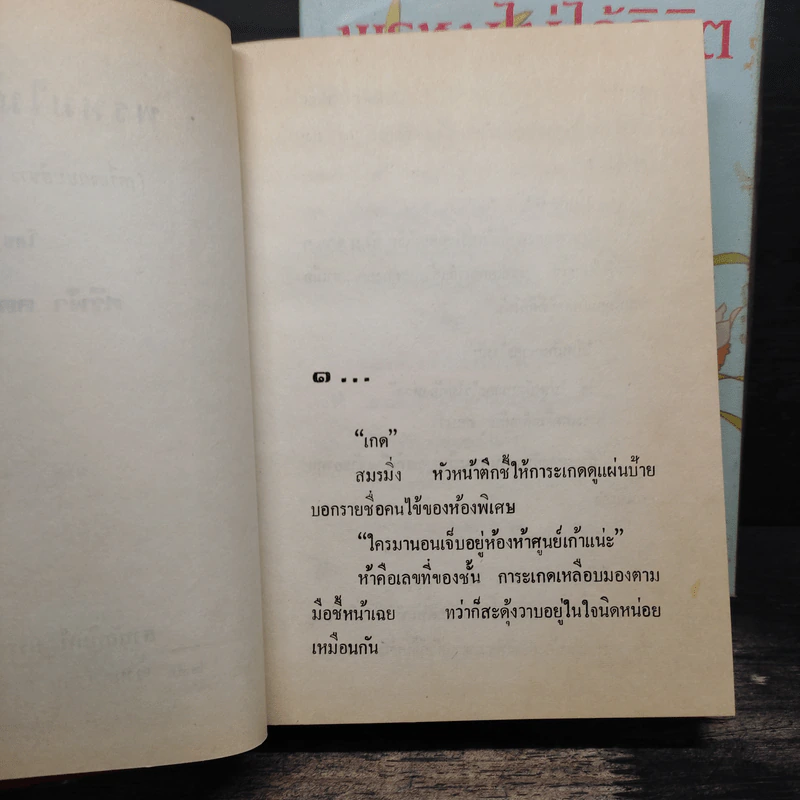 พรหมไม่ได้ลิขิต
๑...
“เกด”
สมรมิ่ง หัวหน้าตึกชี้ให้การะเกดดูแผ่นป้าย
บอกรายชื่อคนไข้ของห้องพิเศษ
“ใครมานอนเจ็บอยู่ห้องห้าศูนย์เก้าแน่ะ”
ห้าคือเลขที่ของชั้น การะเกดเหลือบมองตาม
มือชี้หน้าเฉย ทว่าก็สะดุ้งวาบอยู่ในใจนิดหน่อย
เหมือนกัน